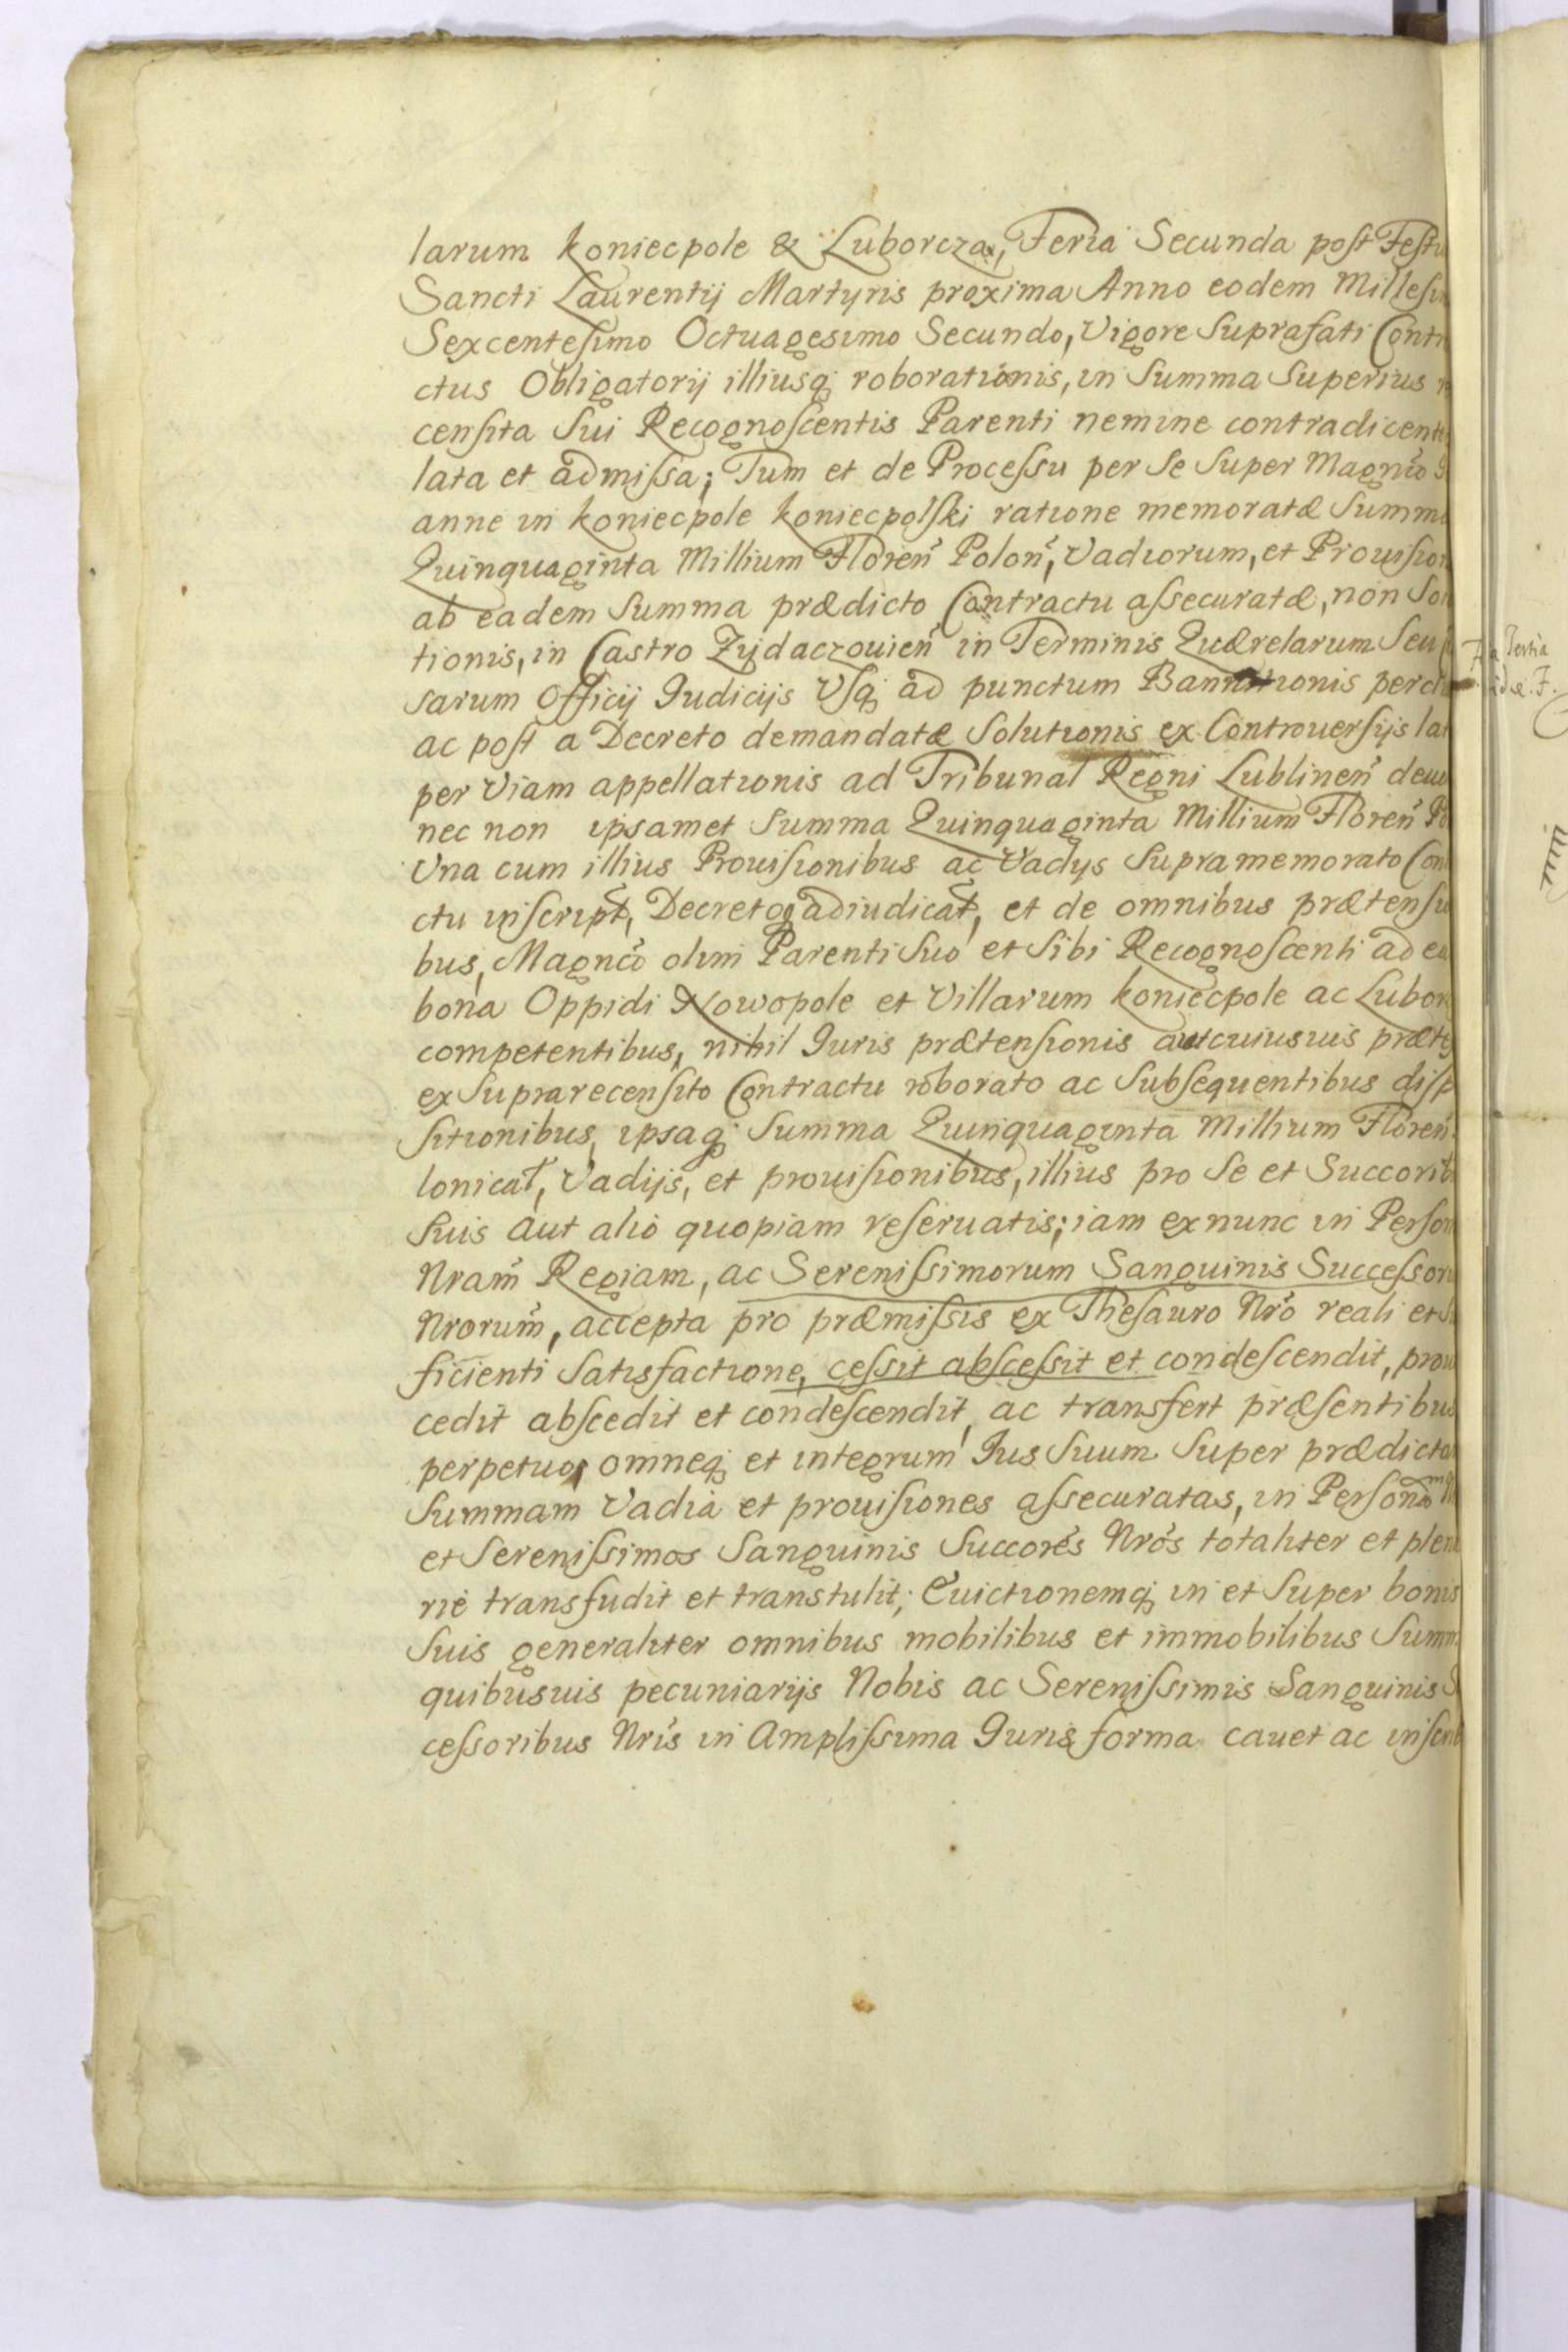 larum Koniecpole & Luborcza, Feria Secunda post Festu
Sancti Laurentij Martyris proxima Anno eodem Millesi
Sexcentesimo Octuagesimo Secundo, Vigore Suprafati Contr
ctus Obligatorij illiusq; roborationis, in Summa Superius
censita Sui Recognoscentis Parenti nemine contradicent
lata et admissa; Tum et de Processu per Se Super Magnco
anne in Koniecpole Koniecpolski ratione memoratæ Summ
Quinquaginta Millium Floren̄ Polon̄, Vadiorum, et Prouision
ab eadem Summa prædicto Contractu assecuratæ, non Sol
tionis, in Castro Zydaczouien̄ in Terminis Quærelarum Seu
sarum Officij Iudicijs Vsq; ad punctum Bannitionis per
ac post a Decreto demandatæ Solutionis ex Controuersijs lat
per Viam appellationis ad Tribunal Regni Lublinen̄ deu
nec non ipsamet Summa Quinquaginta Millium Floren̄ Po
Una cum illius Prouisionibus ac Vadys Supra memorato Con
ctu inscript, Decretoq; adiudicat, et de omnibus prætensi
bus, Magnco olim Parenti Suo et Sibi Recognoscenti ad ea
bona Oppidi Nowopole et Villarum Koniecpole ac Lubor
competentibus, nihil Iuris prætensionis aut cuiusuis præte
ex Suprarecensito Contractu roborato ac Subsequentibus disp
sitionibus, ipsaq; Summa Quinquaginta Millium Floren̄
lonical, Vadijs, et prouisionibus, illius pro Se et Succorib
Suis aut alio quopiam reseruatis; iam ex nunc in Person
Nram̄ Regiam, ac Serenissimorum Sanguinis Successoru
Nrorum̄, accepta pro præmissis ex Thesauro Nro reali et Su
ficienti Satisfactione, cessit abscessit et condescendit, prou
cedit abscedit et condescendit, ac transfert præsentibus
perpetuo, omneq; et integrum Ius Suum Super prædicta
Summam Vadia et prouisiones assecuratas, in Personam
et Serenissimos Sanguinis Succores Nros totaliter et plena
rie transfudit et transtulit; Euictionemq; in et Super bonis
Suis generaliter omnibus mobilibus et immobilibus Summ
quibusuis pecuniarijs Nobis ac Serenissimis Sanguinis S
cessoribus Nris in Amplissima Iuris forma cauet ac inscrib
Tertia